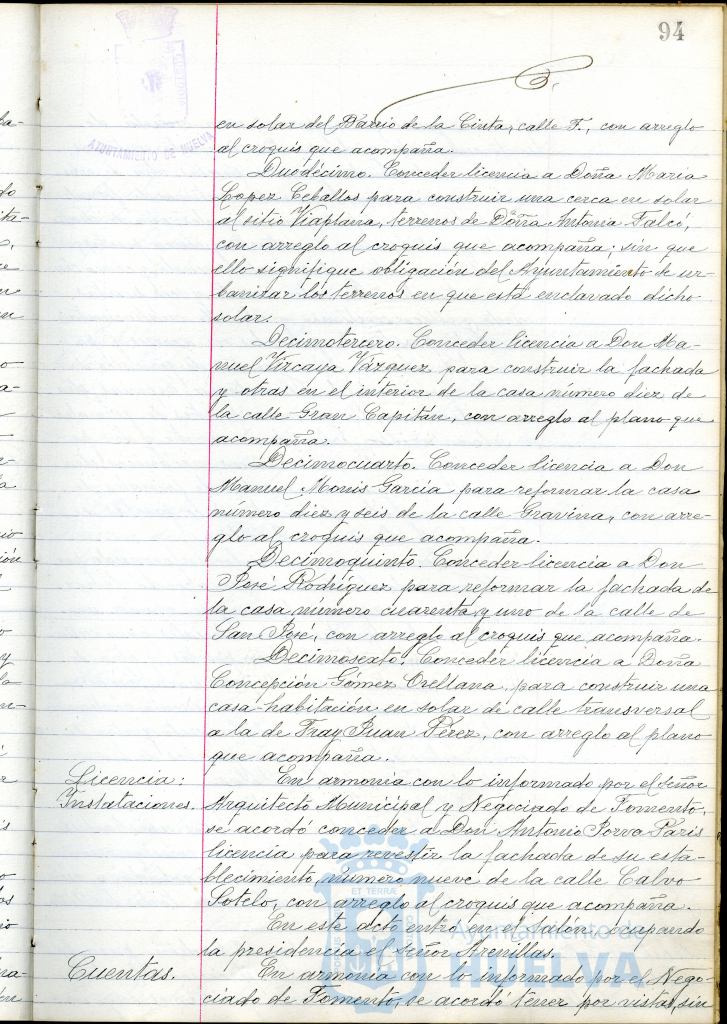 94
AYUNTAMIENTO DE HUELVA
en solar del Barrio de la Cinta, calle F., con arreglo
al croquis que acompaña.
Duodécimo. Conceder licencia a Doña Maria
Lopez Ceballos para construir una cerca en solar
al sitio Viaplana, terrenos de Doña Antonia Falcó,
con arreglo al croquis que acompaña; sin que
ello signifique obligación del Ayuntamiento de ur-
banizar los terrenos en que está enclavado dicho
solar.
Decimotercero. Conceder licencia a Don Ma-
nuel Vizcaya Vázquez para construir la fachada
y otras en el interior de la casa número diez de
la calle Gran Capitán, con arreglo al plano que
acompaña.
Decimocuarto. Conceder licencia a Don
Manuel Monis García para reformar la casa
número diez y seis de la calle Gravina, con arre-
glo al croquis que acompaña.
Decimoquinto. Conceder licencia a Don
José Rodríguez para reformar la fachada de
la casa número cuarenta y uno de la calle de
San José, con arreglo al croquis que acompaña.
Decimosexto. Conceder licencia a Doña
Concepción Gómez Orellana, para construir una
casa-habitación en solar de calle transversal
a la de Fray Juan Pérez, con arreglo al plano
que acompaña.
Licencia:
Instalaciones.
En armonía con lo informado por el Señor
Arquitecto Municipal y Negociado de Fomento,
se acordó conceder a Don Antonio Paris
licencia para revestir la fachada de su esta-
blecimiento, número nueve de la calle Calvo
Sotelo, con arreglo al croquis que acompaña.
En este acto entró en el salón, ocupando
la presidencia el Señor Arenillas.
Cuentas.
En armonía con lo informado por el Nego-
ciado de Fomento, se acordó tener por vistas, sin
ET TERRÆ
Ayuntamiento de
HUELVA